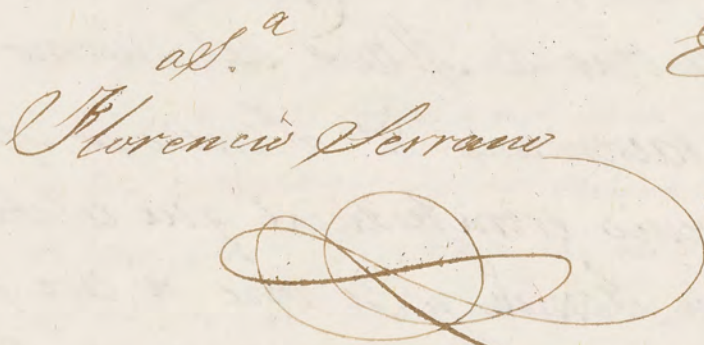 a S.ª
Florencio Serrano